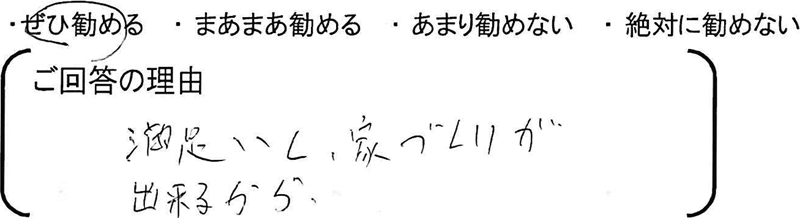 ・ぜひ勧める ・まあまあ勧める ・あまり勧めない ・絶対に勧めない
ご回答の理由
満足いく、家づくりが
出来るから。